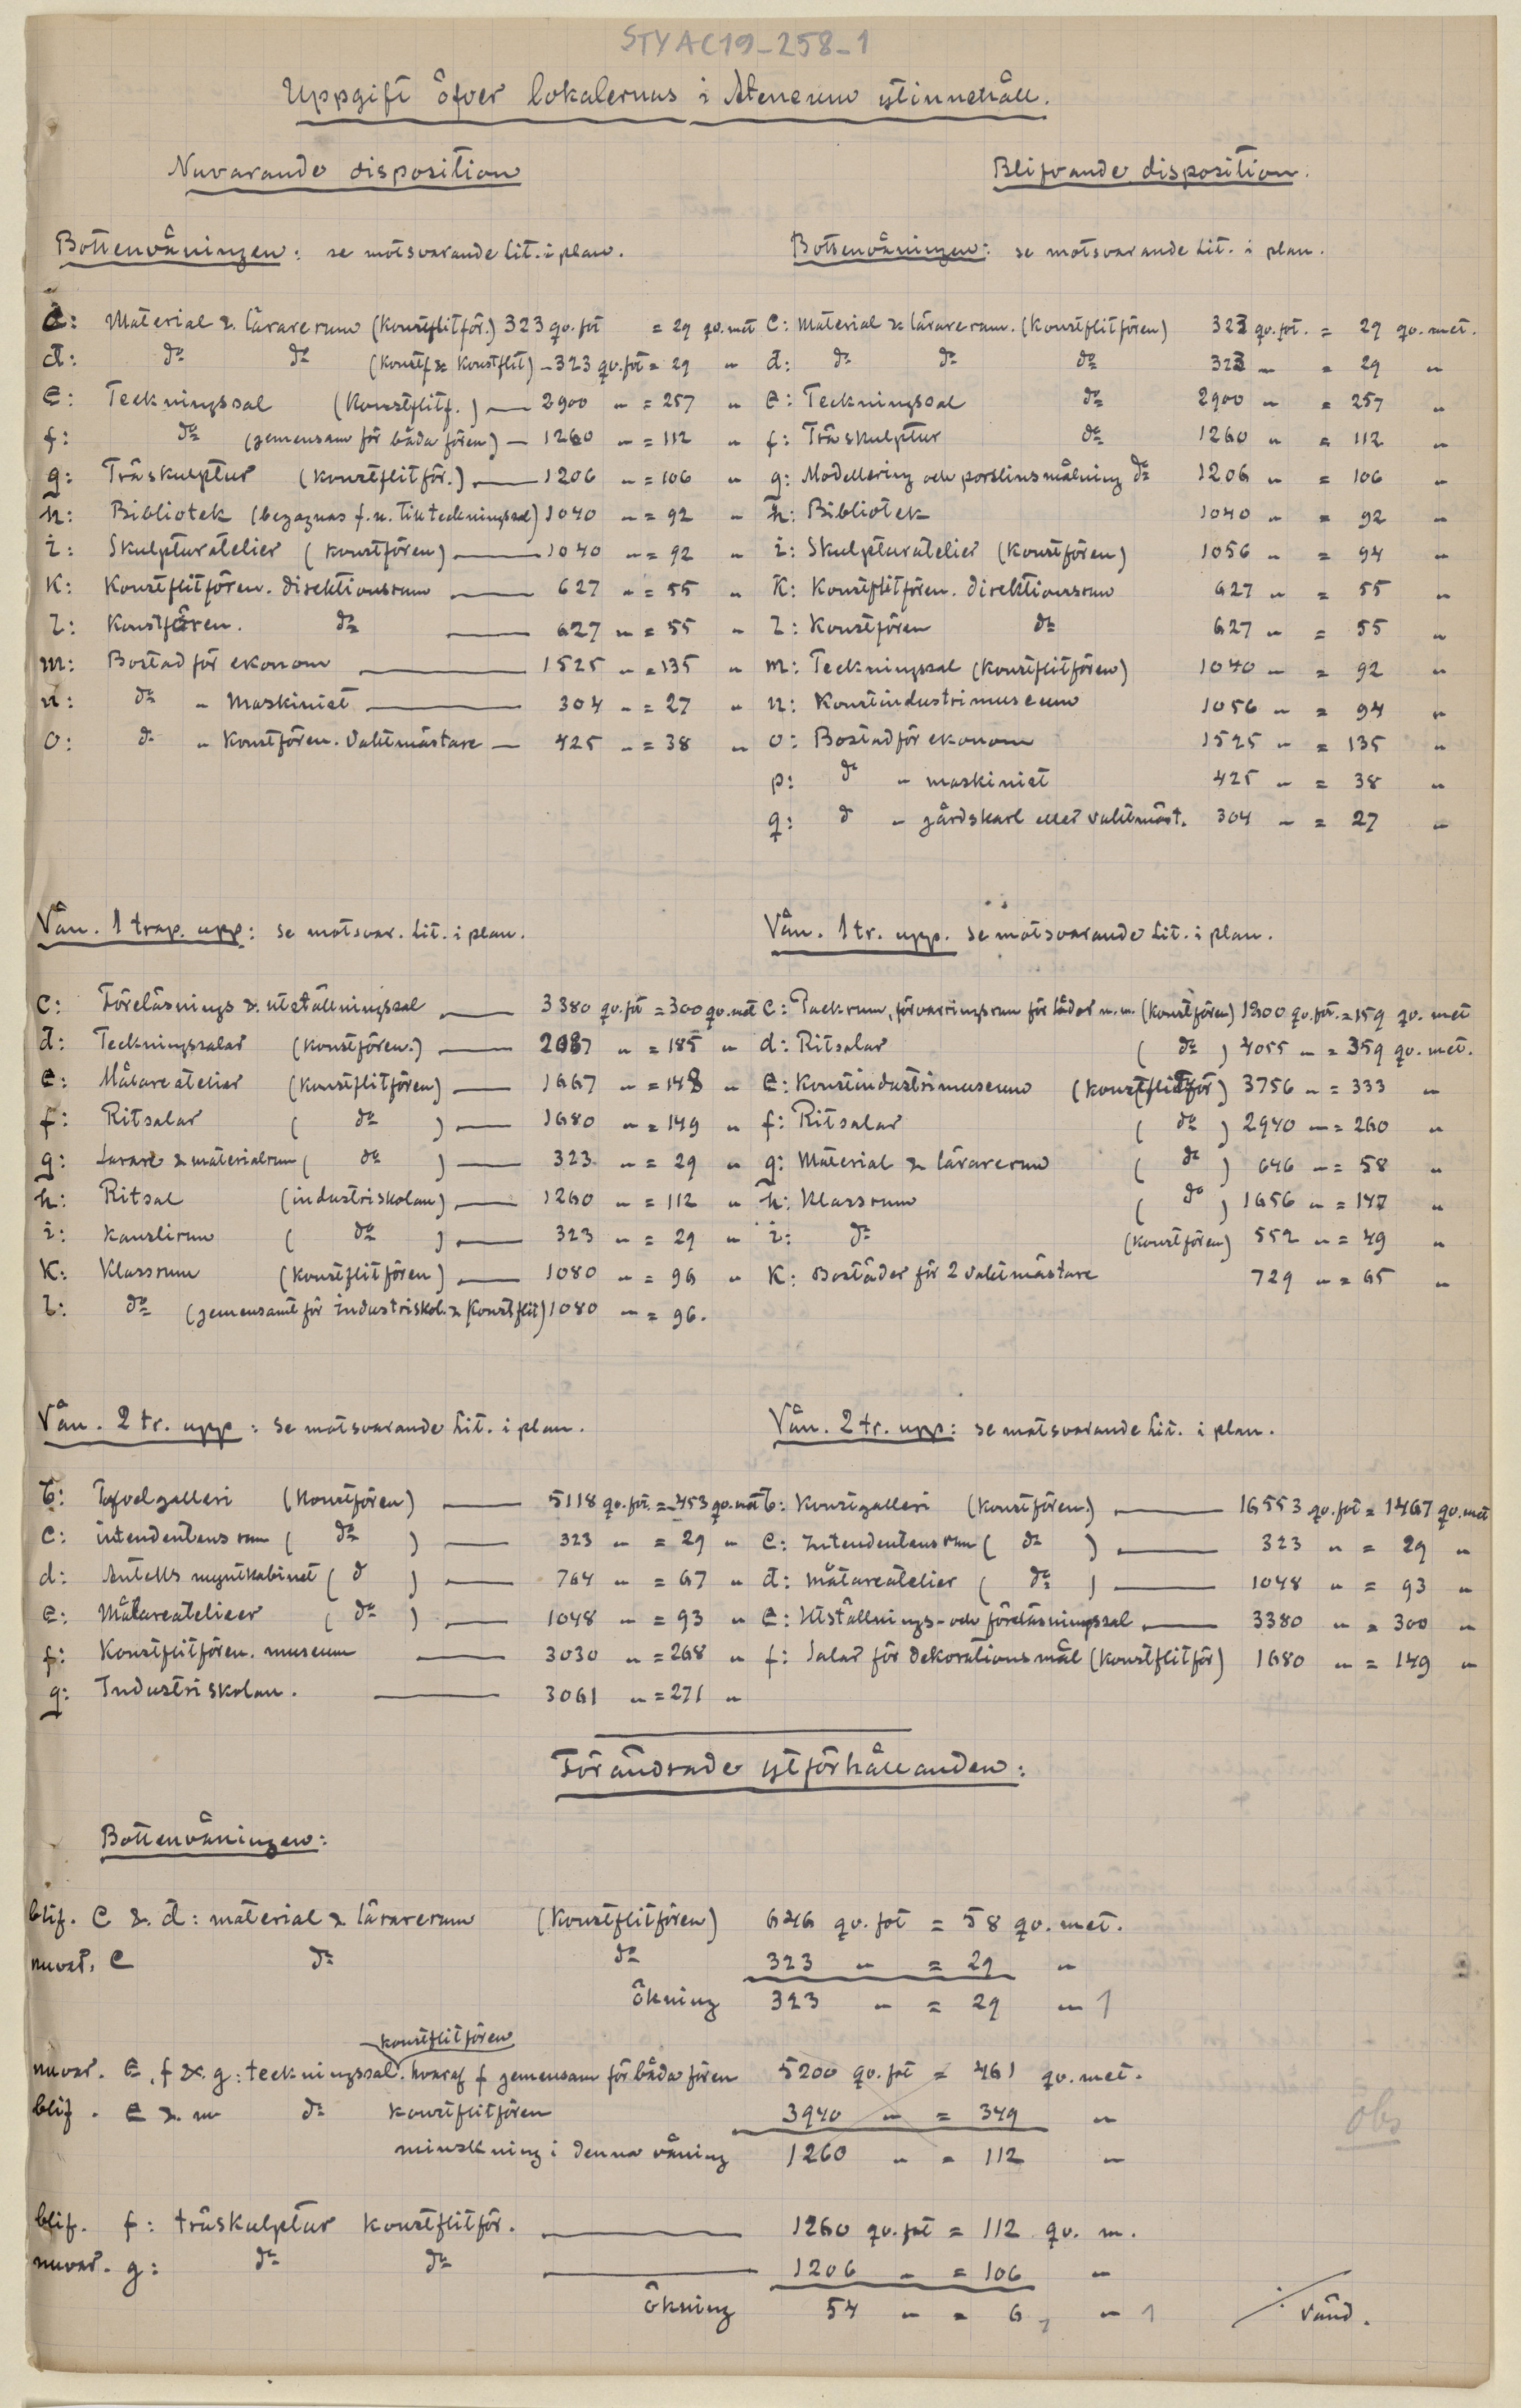 STYAC19-258-1
Uppgift öfver lokalernas i Ateneum ytinnehåll.
Nuvarande disposition
Blifvande disposition.
Bottenvåningen: se motsvarande Lit. i plan.
Bottenvåningen: se motsvarande Lit. i plan.
c: Material & lärarerum (Konstflitför.) 323 qv. fot = 29 qv. met
d: do do (Konstf & Konstflit) – 323 qv. fot = 29 "
e: Teckningssal (Konstflitf.) — 2900 " = 257 "
f: do (gemensam för båda fören) – 1260 " = 112 "
g: Träskulptur (Konstflitför.) — 1206 " = 106 "
h: Bibliotek (begagnas f. n. till teckningssal) 1040 " = 92 "
i: Skulpturatelier (Konstfören) — 1040 " = 92 "
K: Konstflitfören. direktionsrum — 627 " = 55 "
l: Konstfören. do — 627 " = 55 "
m: Bostad för ekonom — 1525 " = 135 "
n: do " Maskinist — 304 " = 27 "
o: do " Konstfören. Vaktmästare — 425 " = 38 "
c: Material & lärarerum. (Konstflitfören) 323 qv. fot. = 29 qv. met.
d: do do do 323 " = 29 "
e: Teckningssal do 2900 " = 257 "
f: Träskulptur do 1260 " = 112 "
g: Modellering och porslinsmålning do 1206 " = 106 "
h: Bibliotek 1040 " = 92 "
i: Skulpturatelier (Konstfören) 1056 " = 94 "
K: Konstflitfören. direktionsrum 627 " = 55 "
l: Konstfören do 627 " = 55 "
m: Teckningssal (Konstflitfören) 1040 " = 92 "
n: Konstindustrimuseum 1056 " = 94 "
o: Bostad för ekonom 1525 " = 135 "
p: do " maskinist 425 " = 38 "
q: do " gårdskarl eller vaktmäst. 304 " = 27 "
Vån. 1 trap. upp: se motsvar. Lit. i plan.
Vån. 1 tr. upp. se motsvarande Lit. i plan.
c: Föreläsnings & utställningssal — 3380 qv. fot = 300 qv. met
d: Teckningssalar (Konstfören.) — 2087 " = 185 "
e: Målareatelier (Konstflitfören) — 1667 " = 148 "
f: Ritsalar ( do ) — 1680 " = 149 "
g: Lärare & materialrum ( do ) — 323 " = 29 "
h: Ritsal (industriskolan) — 1260 " = 112 "
i: Kanslirum ( do ) — 323 " = 29 "
K: Klassrum (Konstflitfören) — 1080 " = 96 "
l: do (gemensamt för industriskol. & Konstflit) 1080 " = 96.
c: Packrum, förvaringsrum för lådor m. m. (Konstfören) 1800 qv. fot. = 159 qv. met
d: Ritsalar ( do ) 4055 " = 359 qv. met.
e: Konstindustrimuseum (Konstflitför) 3756 " = 333 "
f: Ritsalar ( do ) 2940 " = 260 "
g: Material & lärarerum ( do ) 646 " = 58 "
h: Klassrum ( do ) 1656 " = 147 "
i: do (Konstfören) 552 " = 49 "
K: Bostäder för 2 vaktmästare 729 " = 65 "
Vån. 2 tr. upp: se motsvarande Lit. i plan.
Vån. 2 tr. upp: se motsvarande Lit. i plan.
b: Tafvelgalleri (Konstfören) — 5118 qv. fot. = 453 qv. met
c: intendentens rum ( do ) — 323 " = 29 "
d: Antells myntkabinet ( do ) — 764 " = 67 "
e: Målareatelieer ( do ) — 1048 " = 93 "
f: Konstflitfören. museum — 3030 " = 268 "
g: Industriskolan. — 3061 " = 271 "
b: Konstgalleri (Konstfören.) — 16553 qv. fot = 1467 qv. met
c: Intendentens rum ( do ) — 323 " = 29 "
d: målareatelier ( do ) — 1048 " = 93 "
e: Utställnings- och föreläsningssal — 3380 " = 300 "
f: Salar för dekorationsmål (Konstflitför) 1680 " = 149 "
Förändrade ytförhållanden:
Bottenvåningen:
blif. c & d: material & lärarerum (Konstflitfören) 646 qv. fot = 58 qv. met.
nuvar. c do do 323 " = 29 "
ökning 323 " = 29 "
konstflitfören
nuvar. e, f & g: teckningssal. hvaraf f gemensam för båda fören 5200 qv. fot = 461 qv. met.
blif. e & m do konstflitfören 3940 " = 349 "
obs
minskning i denna våning 1260 " = 112 "
blif. f: träskulptur konstflitför. — 1260 qv. fot = 112 qv. m.
nuvar. g: do do — 1206 " = 106 "
ökning 54 " = 6 "
vänd.